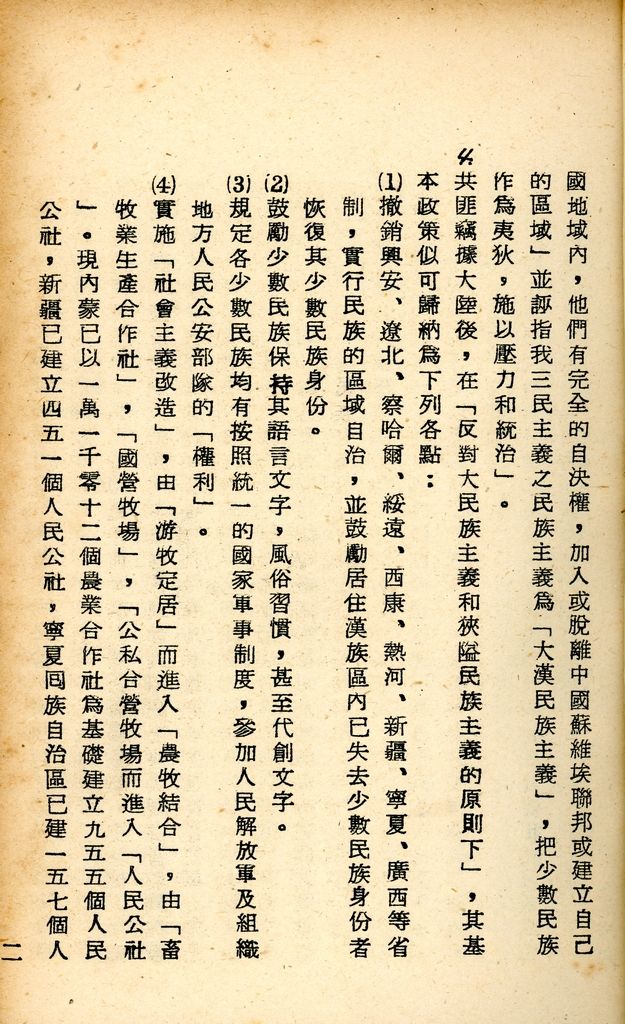 國地域內，他們有完全的自決權，加入或脫離中國蘇維埃聯邦或建立自己
的區域」並誣指我三民主義之民族主義為「大漢民族主義」，把少數民族
作為夷狄，施以壓力和統治」。
4.共匪竊據大陸後，在「反對大民族主義和狹隘民族主義的原則下」，其基
本政策似可歸納為下列各點：
(1)撤銷興安、遼北、察哈爾、綏遠、西康、熱河、新疆、寧夏、廣西等省
制，實行民族的區域自治，並鼓勵居住漢族區內已失去少數民族身份者
恢復其少數民族身份。
(2)鼓勵少數民族保持其語言文字，風俗習慣，甚至代創文字。
(3)規定各少數民族均有按照統一的國家軍事制度，參加人民解放軍及組織
地方人民公安部隊的「權利」。
(4)實施「社會主義改造」，由「游牧定居」而進入「農牧結合」，由「畜
牧業生產合作社」，「國營牧場」，「公私合營牧場而進入「人民公社
」。現內蒙已以一萬一千零十二個農業合作社為基礎建立九五五個人民
公社，新疆已建立四五一個人民公社，寧夏回族自治區已建一五七個人
二